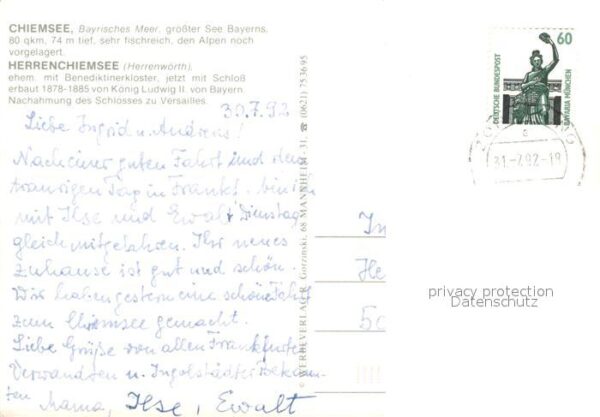 CHIEMSEE, Bayrisches Meer, größter See Bayerns,
80 qkm, 74 m tief, sehr fischreich, den Alpen noch
vorgelagert.
HERRENCHIEMSEE (Herrenwörth),
ehem. mit Benediktinerkloster, jetzt mit Schloß
erbaut 1878-1885 von König Ludwig II. von Bayern.
Nachahmung des Schlosses zu Versailles.
30.7.92
Liebe Ingrid u. Andreas!
Nach einer guten Fahrt und dem
traurigen Tag in Frankf. bin ich
mit Ilse und Ewalt Dienstag
gleich mitgefahren. Ihr neues
Zuhause ist gut und schön.
Wir haben gestern eine schöne Fahrt
zum Chiemsee gemacht.
Liebe Grüße von allen Frankfurter
Verwandten u. Ingolstädter Bekann-
ten Mama, Ilse, Ewalt
© WERBEVERLAG E. Gorzinski, 68 MANNHEIM-31, ☎ (0621) 753695
60
DEUTSCHE BUNDESPOST
BAVARIA MÜNCHEN
a
31-7.92-19
In
He
50
privacy protection
Datenschutz